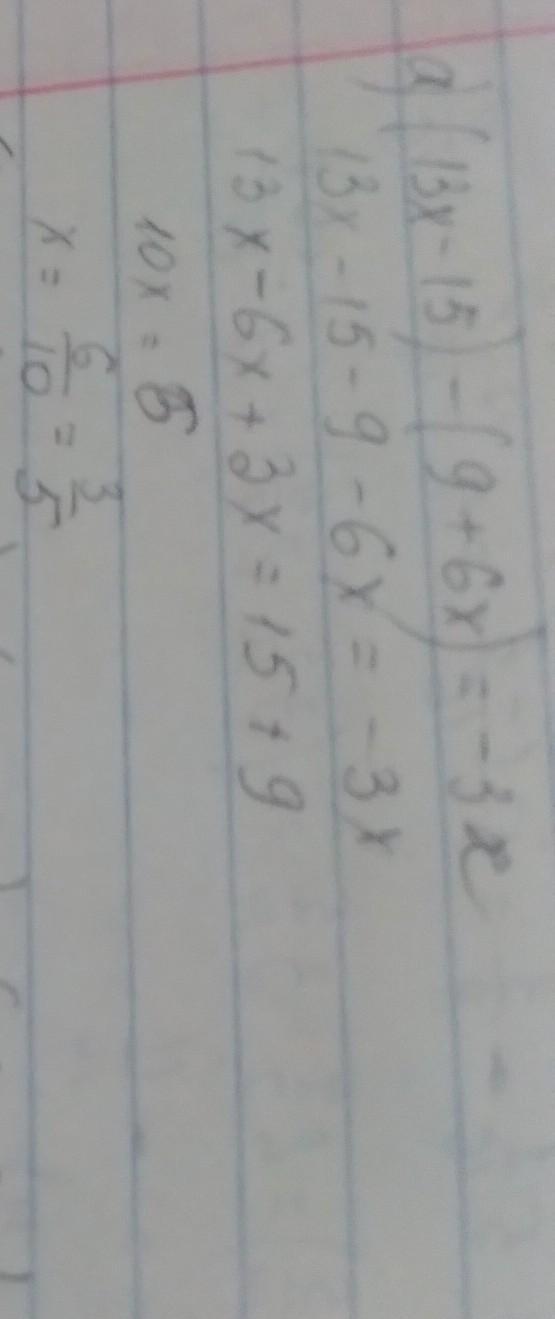 a) (13x-15)-(9+6x)=-3x
13x-15-9-6x=-3x
13x-6x+3x=15+9
10x=
x=6/10=3/5